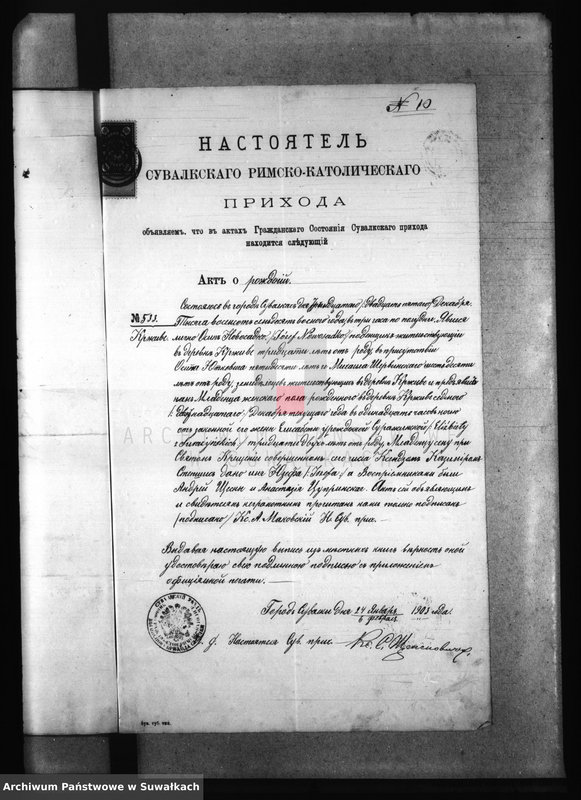 № 10
НАСТОЯТЕЛЬ
СУВАЛКСКАГО РИМСКО-КАТОЛИЧЕСКАГО
ПРИХОДА
объявляемъ, что въ актахъ Гражданскаго Состоянія Сувалкскаго прихода
находится слѣдующій
Актъ о рожденіи.
Состоялось въ городѣ Сувалкахъ дня /двадцать пятаго/ Декабря
№ 533. Тысяча восемьсотъ семьдесятъ восьмого года, въ три часа по полудни. Явился
Крживе. лично Осипъ Новосадко /Józef Nowosadko/ поденщикъ жительствующій
въ деревнѣ Крживе тридцати лѣтъ отъ роду, въ присутствіи
Осипа пятидесяти лѣтъ и Михаила шестидесяти
лѣтъ отъ роду, земледѣльцевъ жительствующихъ въ деревнѣ Крживе и предъявилъ
намъ Младенца женскаго пола рожденнаго въ деревнѣ Крживе седьмого
/двадцатаго/ Декабря текущаго года въ одинадцать часовъ ночи
отъ законной его жены Елисаветы урожденной /Elżbiety
z / тридцати двухъ лѣтъ отъ роду. Младенцу сему при
Святомъ Крещеніи совершенномъ сего числа Ксендзомъ Казиміромъ
дано имя /Iozefa/, а Воспріемниками были
Андрей и Анастазія. Актъ сей объявляющимъ
и свидѣтелямъ неграмотнымъ прочитанъ нами только подписанъ
/подписано/ Кс. А. Маховскій Н. Сув. прих. —
Выдавая настоящую выпись изъ мѣстныхъ книгъ вѣрность оной
удостовѣряю своею подлинною подписью съ приложеніемъ
оффиціальной печати. —
Городъ Сувалки дня 24 Января / 6 Февраля 1903 года.
Настоятель Сув. прих. Кс. С.
Сув. губ. тип.
ARC
Archiwum Państwowe w Suwałkach